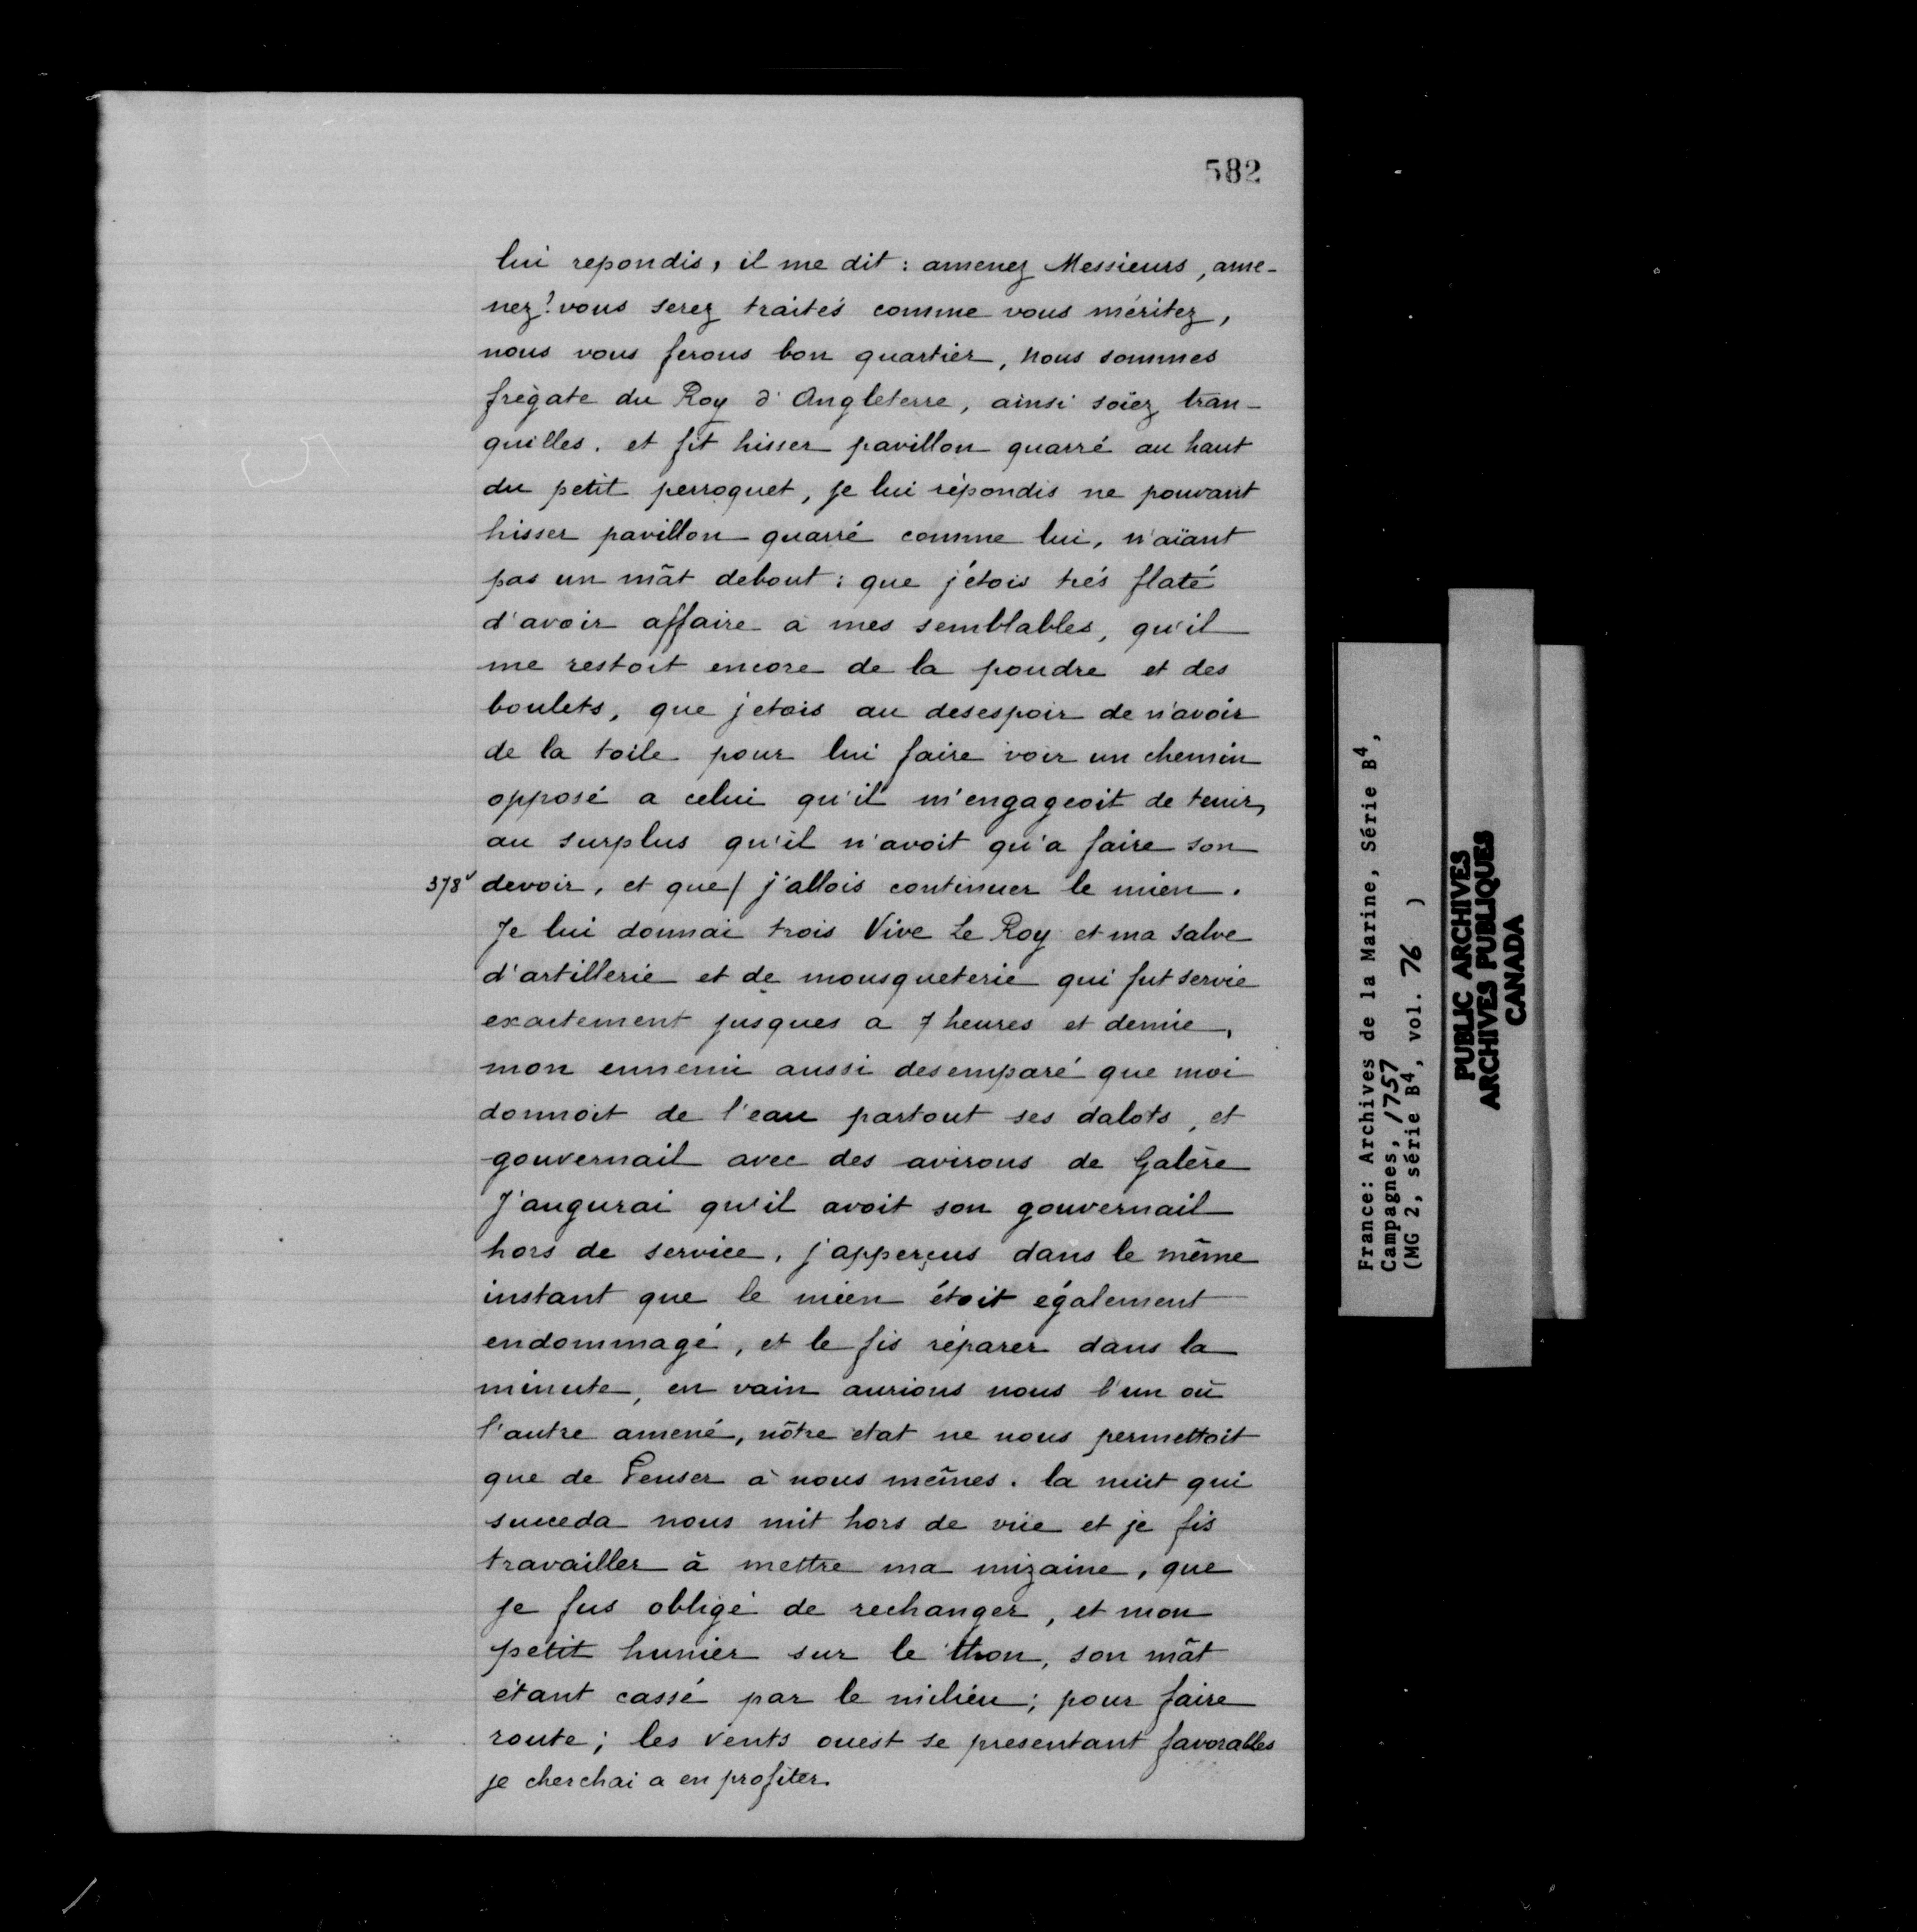 582
lui repondis, il me dit : amenez Messieurs, ame-
nez! vous serez traités comme vous méritez,
nous vous ferons bon quartier, nous sommes
frégate du Roy d'Angleterre, ainsi soïez tran-
quilles. et fit hisser pavillon quarré au haut
du petit perroquet, je lui répondis ne pouvant
hisser pavillon quarré comme lui, n'aïant
pas un mât debout : que j'étois trés flaté
d'avoir affaire a mes semblables, qu'il
me restoit encore de la poudre et des
boulets, que j'etois au desespoir de n'avoir
de la toile pour lui faire voir un chemin
opposé a celui qu'il m'engageoit de tenir,
au surplus qu'il n'avoit qu'a faire son
378v devoir, et que/ j'allois continuer le mien.
Je lui donnai trois Vive Le Roy et ma salve
d'artillerie et de mousqueterie qui fut servie
exactement jusques a 7 heures et demie,
mon ennemi aussi desemparé que moi
donnoit de l'eau partout ses dalots, et
gouvernail avec des avirons de Galère
J'augurai qu'il avoit son gouvernail
hors de service, j'apperçus dans le même
instant que le mien étoit également
endommagé, et le fis réparer dans la
minute, en vain aurions nous l'un où
l'autre amené, nôtre etat ne nous permettoit
que de Penser à nous mêmes. la nuit qui
succeda nous mit hors de vüe et je fis
travailler à mettre ma mizaine, que
je fus obligé de rechanger, et mon
petit hunier sur le thon, son mât
étant cassé par le milieu ; pour faire
route ; les vents ouest se presentant favorables
je cherchai a en profiter.
France: Archives de la Marine, Série B4,
Campagnes, 1757
(MG 2, série B4, vol. 76 )
PUBLIC ARCHIVES
ARCHIVES PUBLIQUES
CANADA